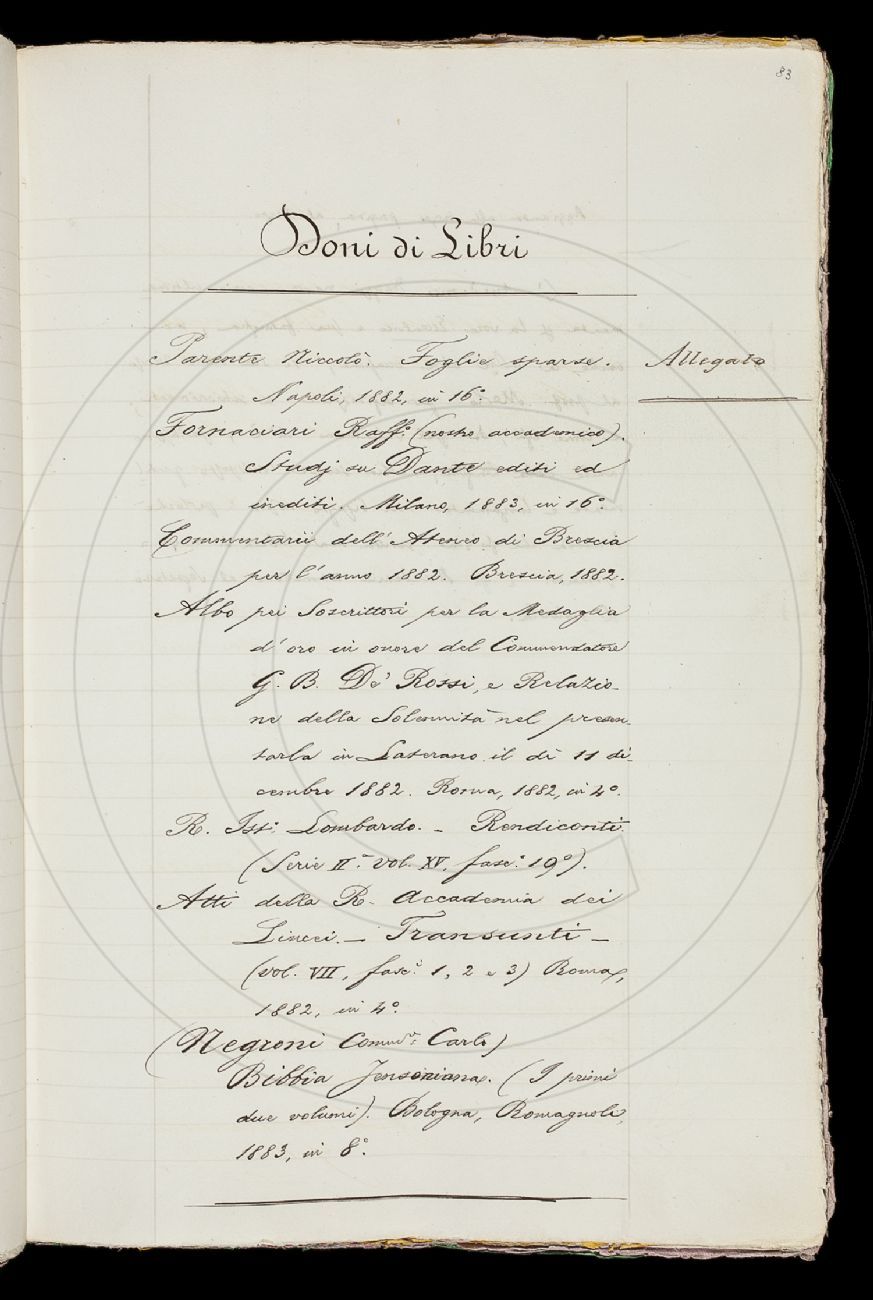 83
Doni di Libri
Parente Niccolò. Foglie sparse.
Allegato
Napoli, 1882, in 16°.
Fornaciari Raff.° (nostro accademico).
Studj su Dante editi ed
inediti. Milano, 1883, in 16°.
Commentarii dell'Ateneo di Brescia
per l'anno 1882. Brescia, 1882.
Albo pei Soscrittori per la Medaglia
d'oro in onore del Commendatore
G. B. De' Rossi, e Relazio-
ne della Solennità nel presen-
tarla in Laterano il dì 11 di-
cembre 1882. Roma, 1882, in 4°.
R. Ist.° Lombardo. — Rendiconti.
(Serie II.ª vol. XV, fasc.° 19°).
Atti della R. Accademia dei
Lincei. — Transunti —
(vol. VII, fasc.i 1, 2 e 3) Roma,
1882, in 4°.
(Negroni Comm.re Carlo)
Bibbia Jensoniana. (I primi
due volumi). Bologna, Romagnoli,
1883, in 8°.